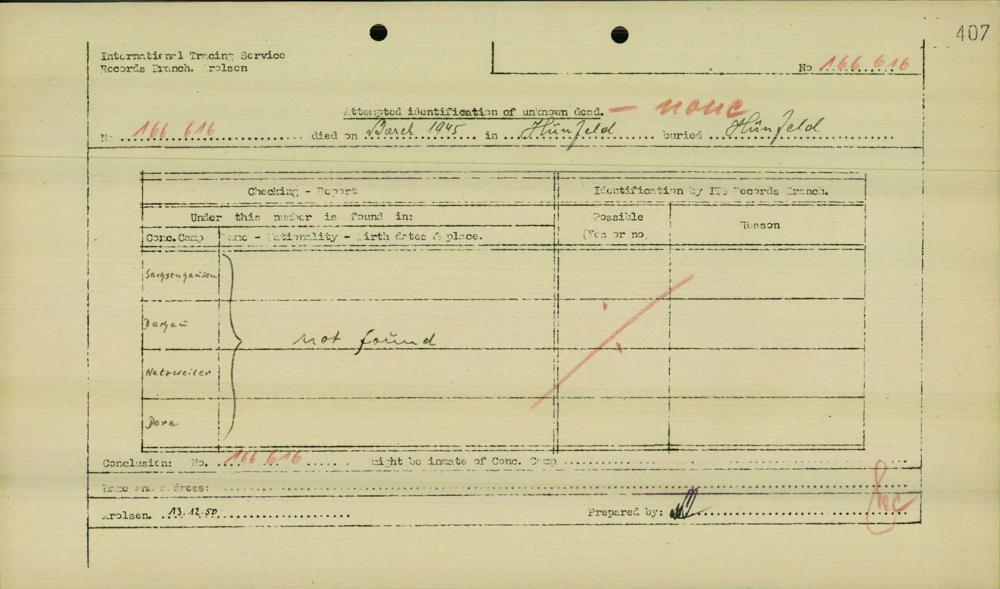 407
International Tracing Service
Records Branch. Arolsen
No 166 616
Attempted identification of unknown dead. — none
No 166 616 died on March 1945 in Hünfeld buried Hünfeld
Checking - Report
Identification by ITS Records Branch.
Under this number is found in:
Possible
(Yes or no)
Reason
Conc.Camp
Name - Nationality - Birth dates & place.
Sachsenhausen
Dachau
not found
Natzweiler
Dora
Conclusion: No. 166 616 might be inmate of Conc. Camp
Name and address:
Arolsen. 13.12.50 Prepared by: